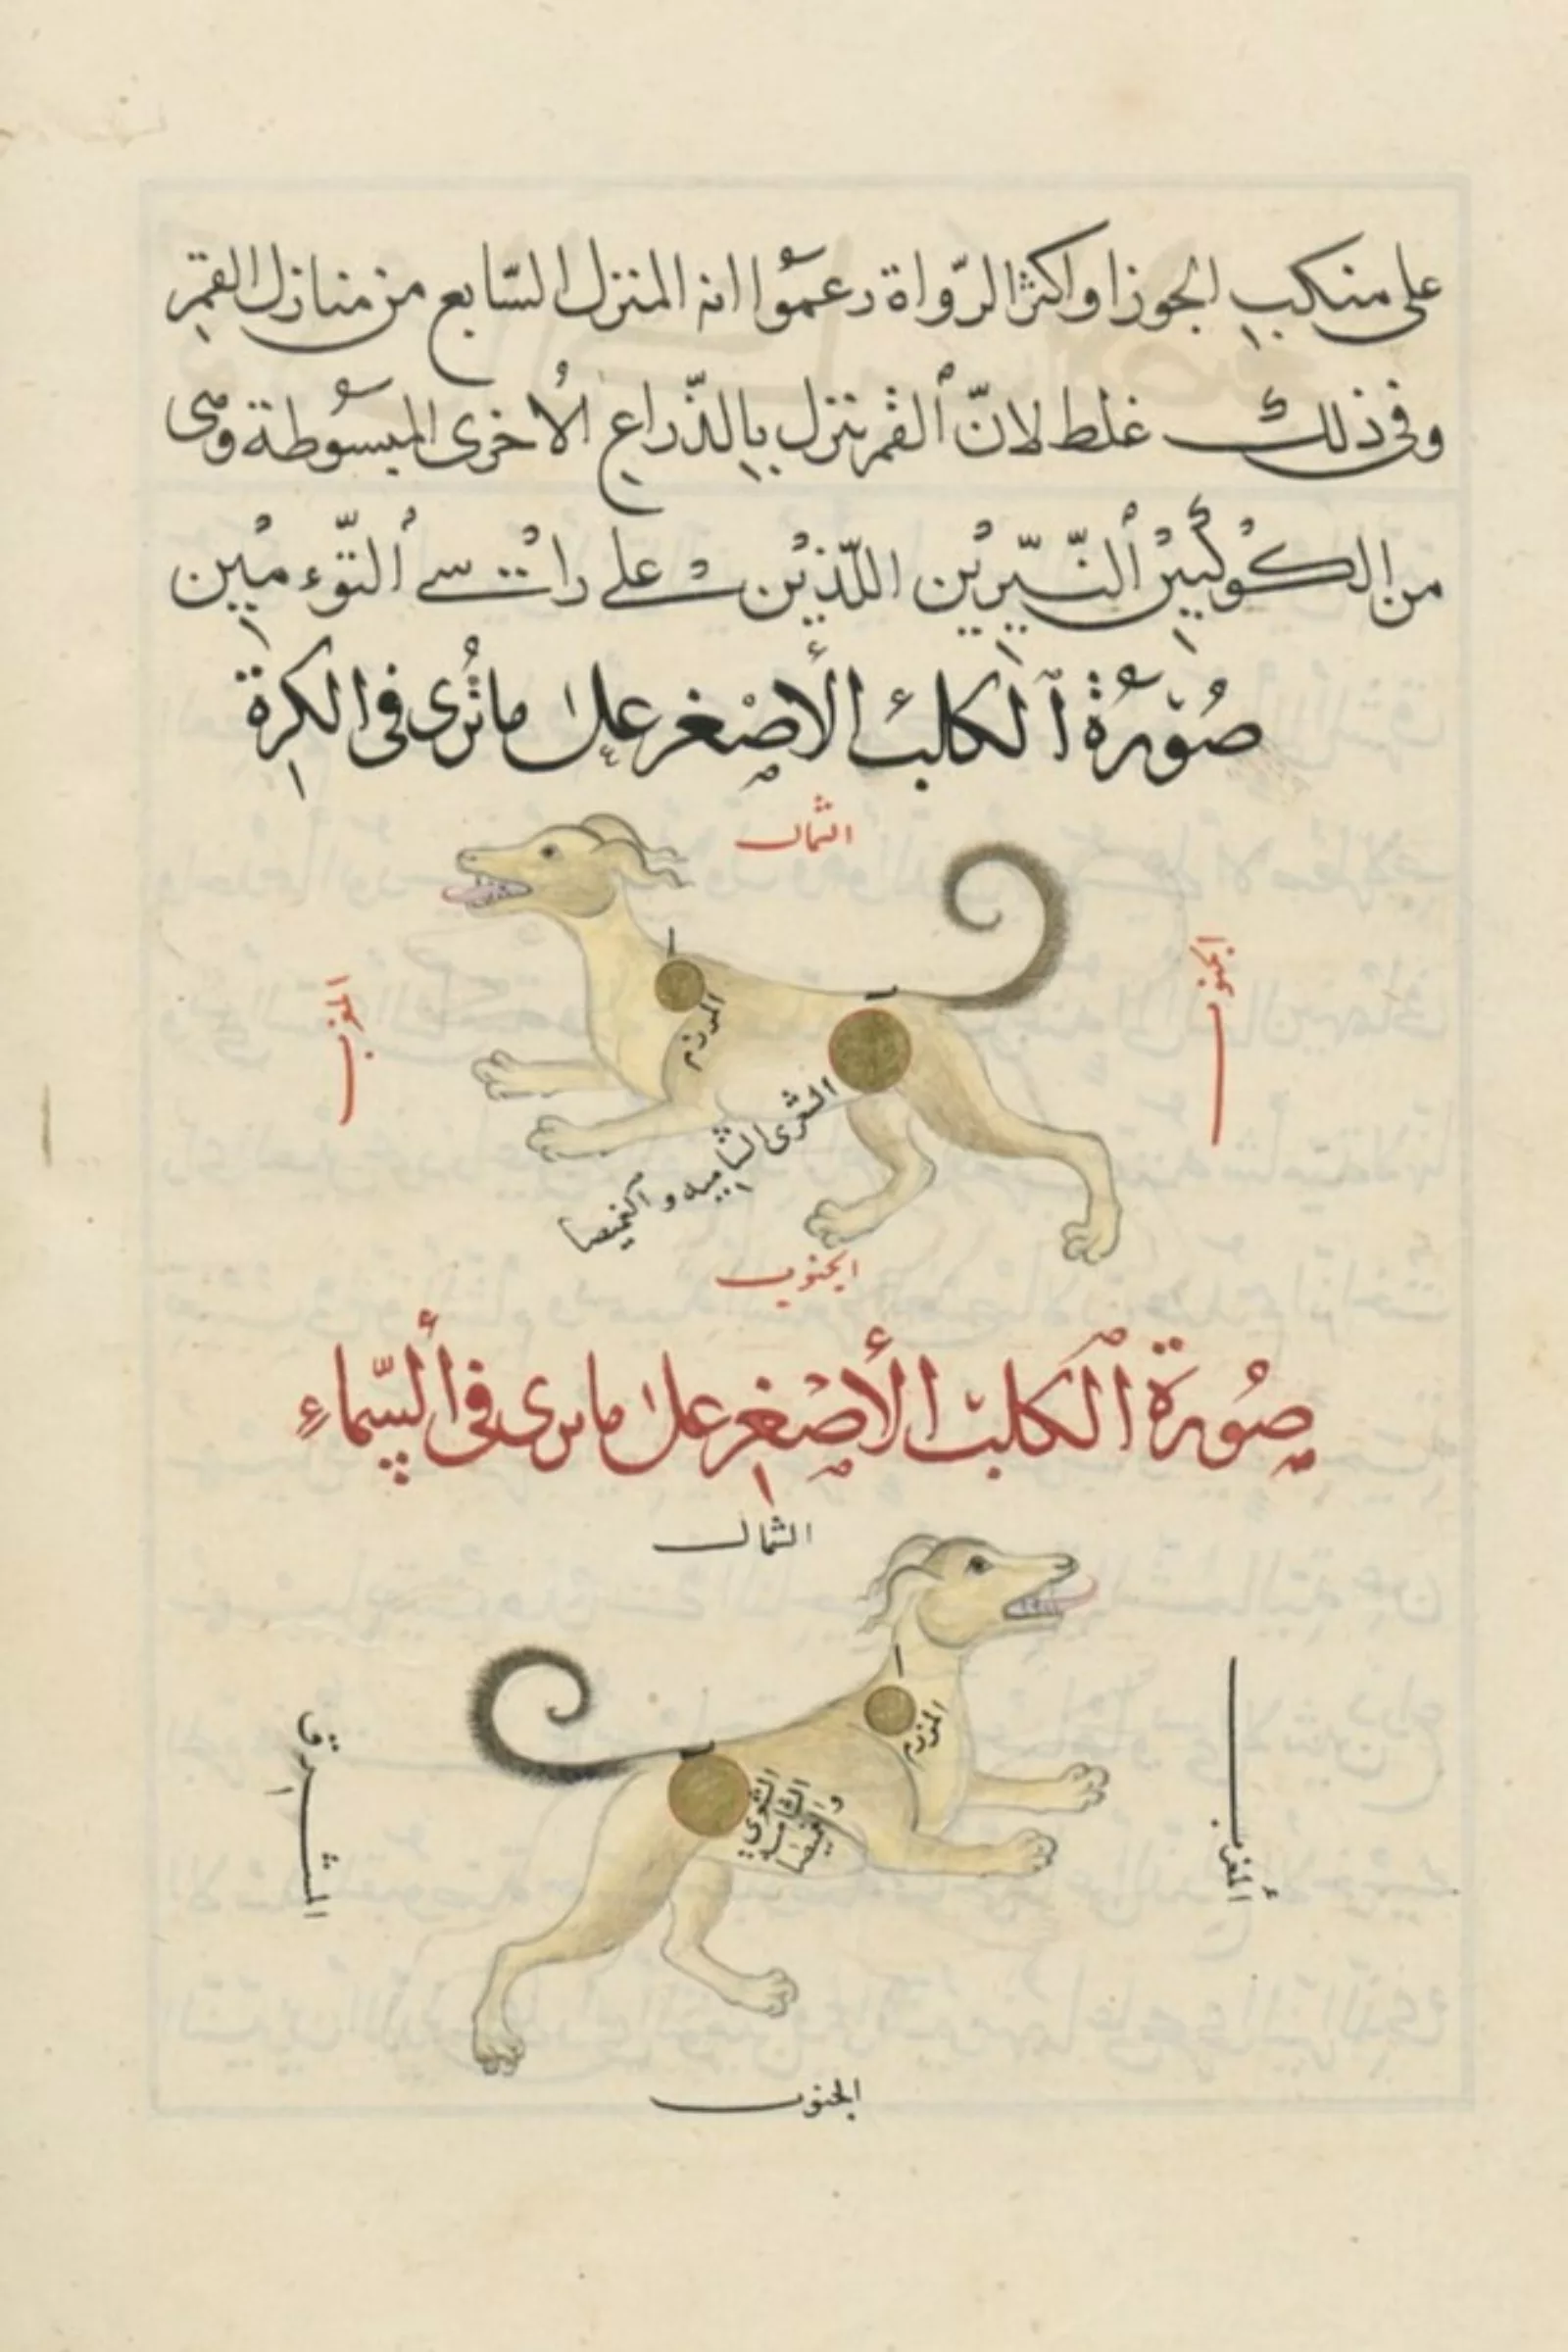 على منكب الجوزا واكثر الرواة زعموا انه المنزل السابع من منازل القمر
وفي ذلك غلط لان القمر ينزل بالذراع الاخرى المبسوطة وهى
من الكوكبين النيرين اللذين على راسى التوءمين
صورة الكلب الأصغر على ما ترى فى الكرة
الشمال
الجنوب
المغرب
المرزم
الشعرى الشاميه والغميصا
الجنوب
صورة الكلب الأصغر على ما يرى فى السماء
الشمال
المغرب
المرزم
الشعرى
الشاميه
والغميصا
المشرق
الجنوب